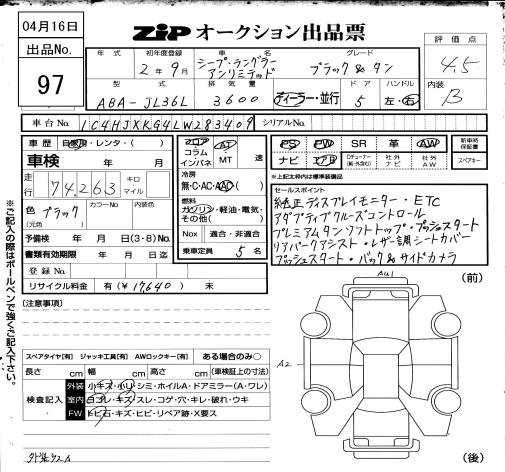 04月16日
ZIP オークション出品票
出品No.
97
年式
初年度登録
車名
グレード
評価点
2年9月
ジープ・ラングラー
アンリミテッド
ブラック&タン
4.5
型式
排気量
ドア
ハンドル
内装
ABA-JL36L
3600
ディーラー・並行
5
左・右
B
車台No.
1C4HJXKG4LW283409
シリアルNo.
車歴
自家用・レンタ・( )
車検 年 月
走行
74,263
キロ
マイル
色
ブラック
(元色)
カラーNo.
内装色
予備検 年 月 日(3・8)No.
書類有効期限 年 月 日迄
登録No.
リサイクル料金 有(¥17,640) 未
フロア
コラム
インパネ
AT
MT
速
冷房
無・C・AC・AAC
燃料
ガソリン・軽油・電気・
その他( )
Nox 適合・非適合
乗車定員 5名
PS
PW
SR
革
AW
新車時
保証書
ナビ
エアB
社外
ナビ
社外
AW
スペアキー
※上記太枠内は標準装備品
セールスポイント
純正ディスプレイモニター・ETC
アダプティブクルーズコントロール
プレミアムタンソフトトップ・プッシュスタート
リアパークアシスト・レザー調シートカバー
プッシュスタート・バック&サイドカメラ
※ご記入の際はボールペンで強くご記入下さい。
(注意事項)
スペアタイヤ[有] ジャッキ工具[有] AWロックキー[有] ある場合のみ○
長さ cm 幅 cm 高さ cm (車検証上の寸法)
検査記入
外装
小キズ・小凹・シミ・ホイルA・ドアミラー(A・ワレ)
室内
ヨゴレ・キズ・スレ・コゲ・穴・キレ・破れ・ウキ
FW
トビ石・キズ・ヒビ・リペア跡・X要ス
(前)
AU1
A2
(後)